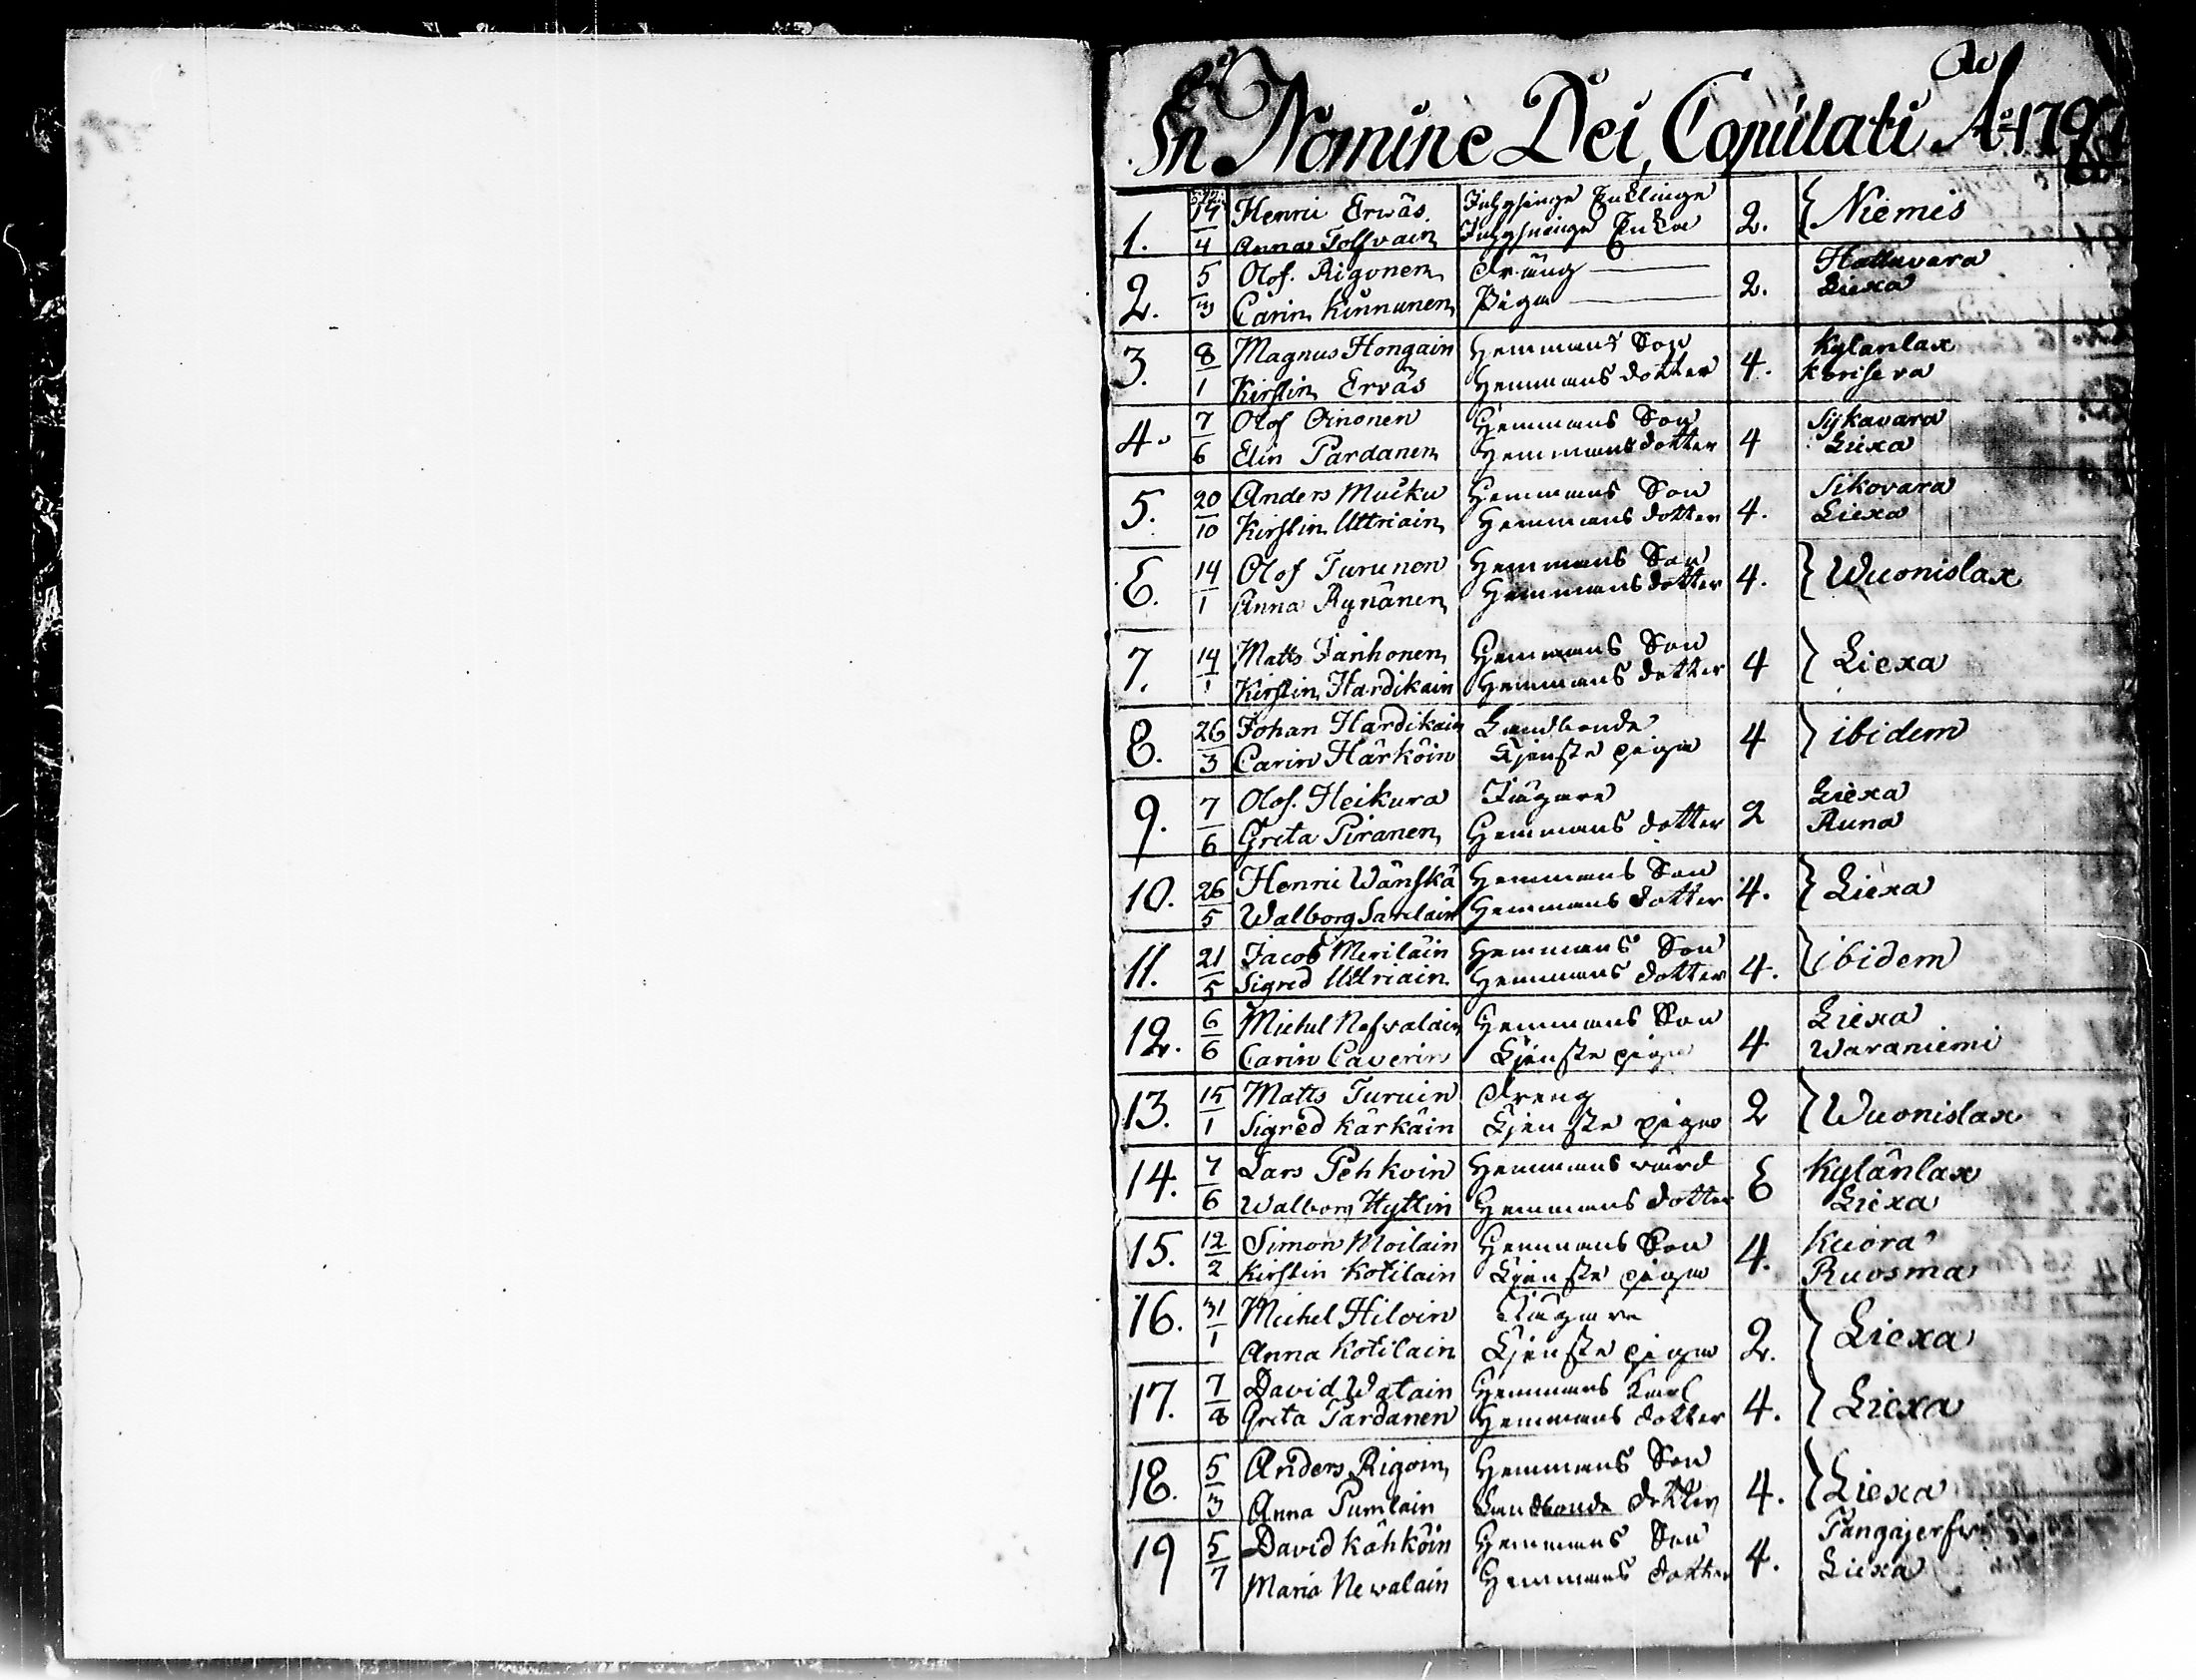 In Nomine Dei, Copulati Ao 179
1. 19/4 Henric Erwäs Inhysinge Enklinge 2. } Niemis
Anna Tolfvain Inhysinge Enka
2. 5/3 Olof. Rigonen Dräng 2. Hattuvara
Carin Kinnunen Piga Liexa
3. 8/1 Magnus Hongain Hemmans Son 4. Kylänlax
Kirstin Erväs Hemmans dotter
4. 7/6 Olof Oinonen Hemmans Son 4 Sijkavara
Elin Pardanen Hemmans dotter Liexa
5. 20/10 Anders Muiku Hemmans Son 4. Sikovara
Kirstin Uttriain Hemmans dotter Liexa
6. 14/1 Olof Turunen Hemmans Son 4. } Wuonislax
Anna Rynänen Hemmans dotter
7. 14/1 Matts Tanhonen Hemmans Son 4 } Liexa
Kirstin Hardikain Hemmans dotter
8. 26/3 Johan Hardikain Landbonde 4 } ibidem
Carin Härköin Tjenste piga
9. 7/6 Olof. Heikura Jägare 2 Liexa
Greta Piranen Hemmans dotter Runa
10. 26/5 Henric Wänskä Hemmans Son 4. } Liexa
Walborg Hemmans dotter
11. 21/5 Jacob Meriläin Hemmans Son 4. } ibidem
Sigred Uttriain Hemmans dotter
12. 6/6 Michel Nefvalain Hemmans Son 4 Liexa
Carin Caverin Tjenste piga Waraniemi
13. 15/1 Matts Turuin Dreng 2 } Wuonislax
Sigred Kärkäin Tjenste piga
14. 7/6 Lars Pehkoin Hemmans värd 6 Kylänlax
Walborg Hyttin Hemmans dotter Liexa
15. 12/2 Simon Moilain Hemmans Son 4. Kuora
Kirstin Kotilain Tjenste piga Ruosma
16. 31/1 Michel Hiloin Jägare 2. } Liexa
Anna Kotilain Tjenste piga
17. 7/8 David Watain Hemmans Karl 4. } Liexa
Greta Pardanen Hemmans dotter
18. 5/3 Anders Rigoin Hemmans Son 4. } Liexa
Anna Pumlain Landbonde dotter
19 5/7 David Kähköin Hemmans Son 4. Pangajerfvi
Maria Newalain Hemmans dotter Liexa